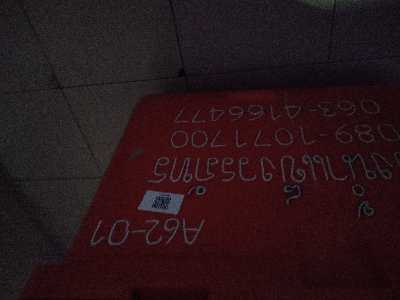 A62-01
งน้ำแข็งวรภัทร
089-1071700
063-4166477